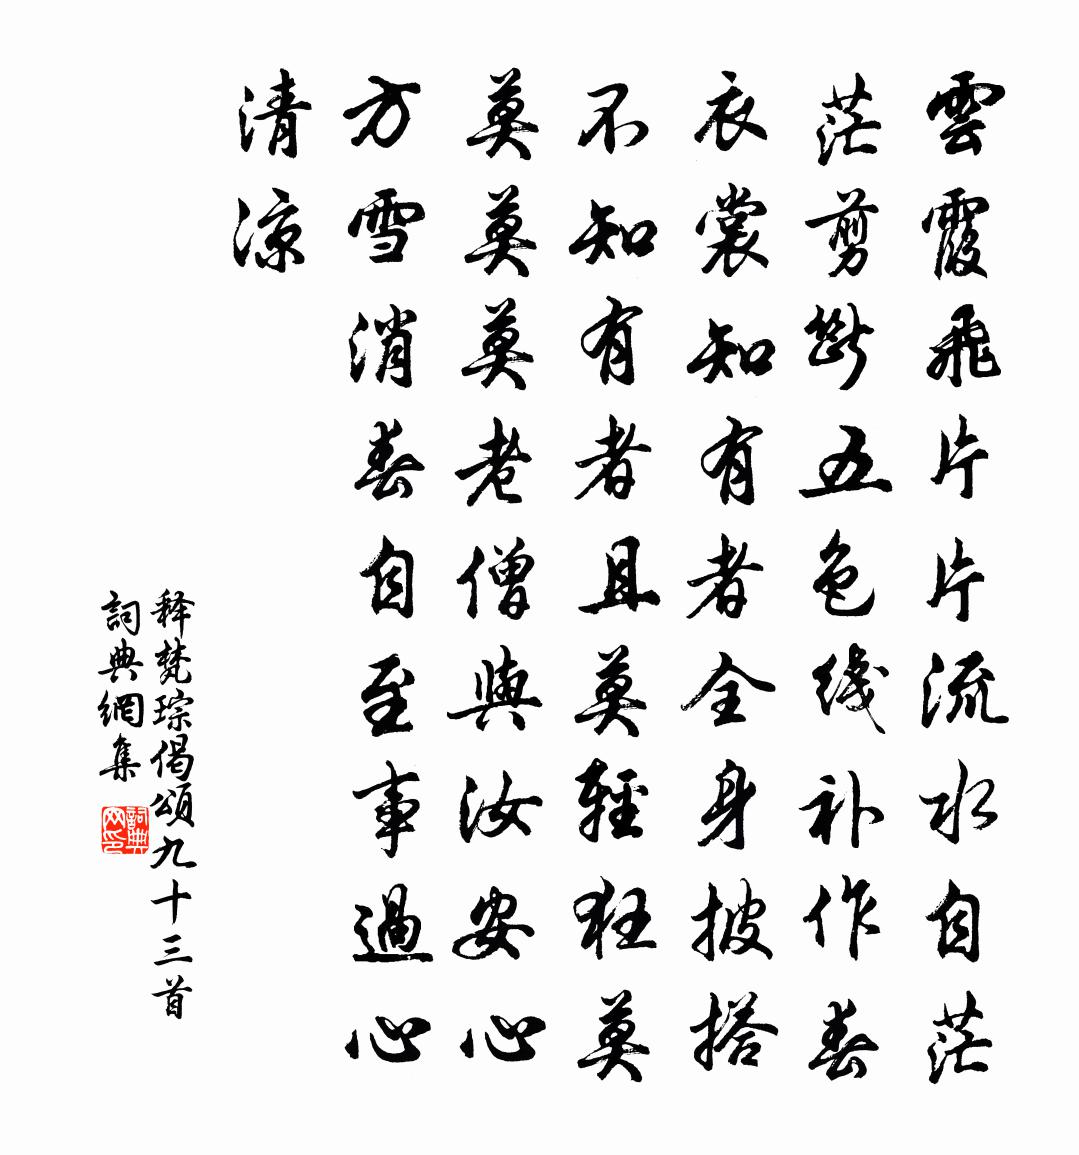 雲霞飛片片流水自茫
茫剪斷五色线补作春
衣裳知有者全身披搭
不知有者且莫輕狂莫
莫莫莫老僧與汝安心
方雪消春自至事過心
清凉
释梵琮偈頌九十三首
詞典網集
詞典网印